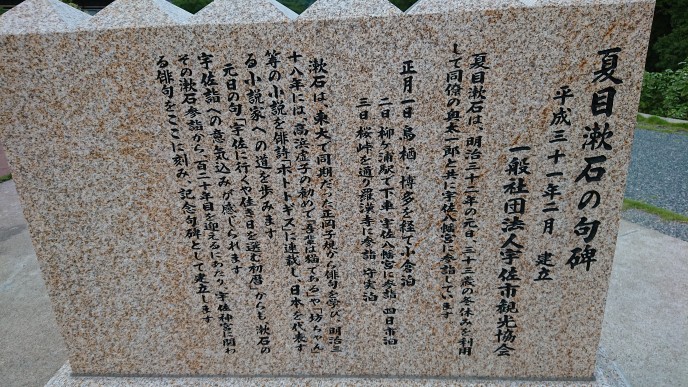 夏目漱石の句碑
平成三十一年二月 建立
一般社団法人宇佐市観光協会
夏目漱石は、明治三十二年の元日、三十三歳の冬休みを利用
して同僚の奥太一郎と共に宇佐八幡宮に参詣しています
正月一日 鳥栖・博多を経て小倉泊
二日 柳ヶ浦駅で下車 宇佐八幡宮に参拝 四日市泊
三日 桜峠を通り羅漢寺に参詣 守実泊
漱石は、東大で同期だった正岡子規から俳句を学び、明治三
十八年には、高浜虚子の勧めで「吾輩は猫である」や「坊ちゃん」
等の小説を俳誌「ホトトギス」に連載し、日本を代表す
る小説家への道を歩みます
元日の句「宇佐に行くや佳き日を選む初暦」からも漱石の
宇佐詣への意気込みが感じられます
その漱石参詣から、百二十年目を迎えるにあたり、宇佐神宮に関わ
る俳句をここに刻み、記念句碑として建立します